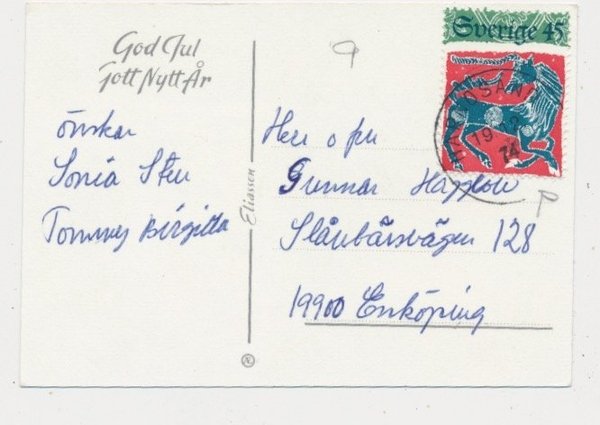 God Jul
Gott Nytt År
önskar
Sonia Sten
Tommy Birgitta
Eliassen
Sverige 45
HÄRNÖSAND
19 12
74
Herr o fru
Gunnar Hagglow
Slånbärsvägen 128
19900 Enköping